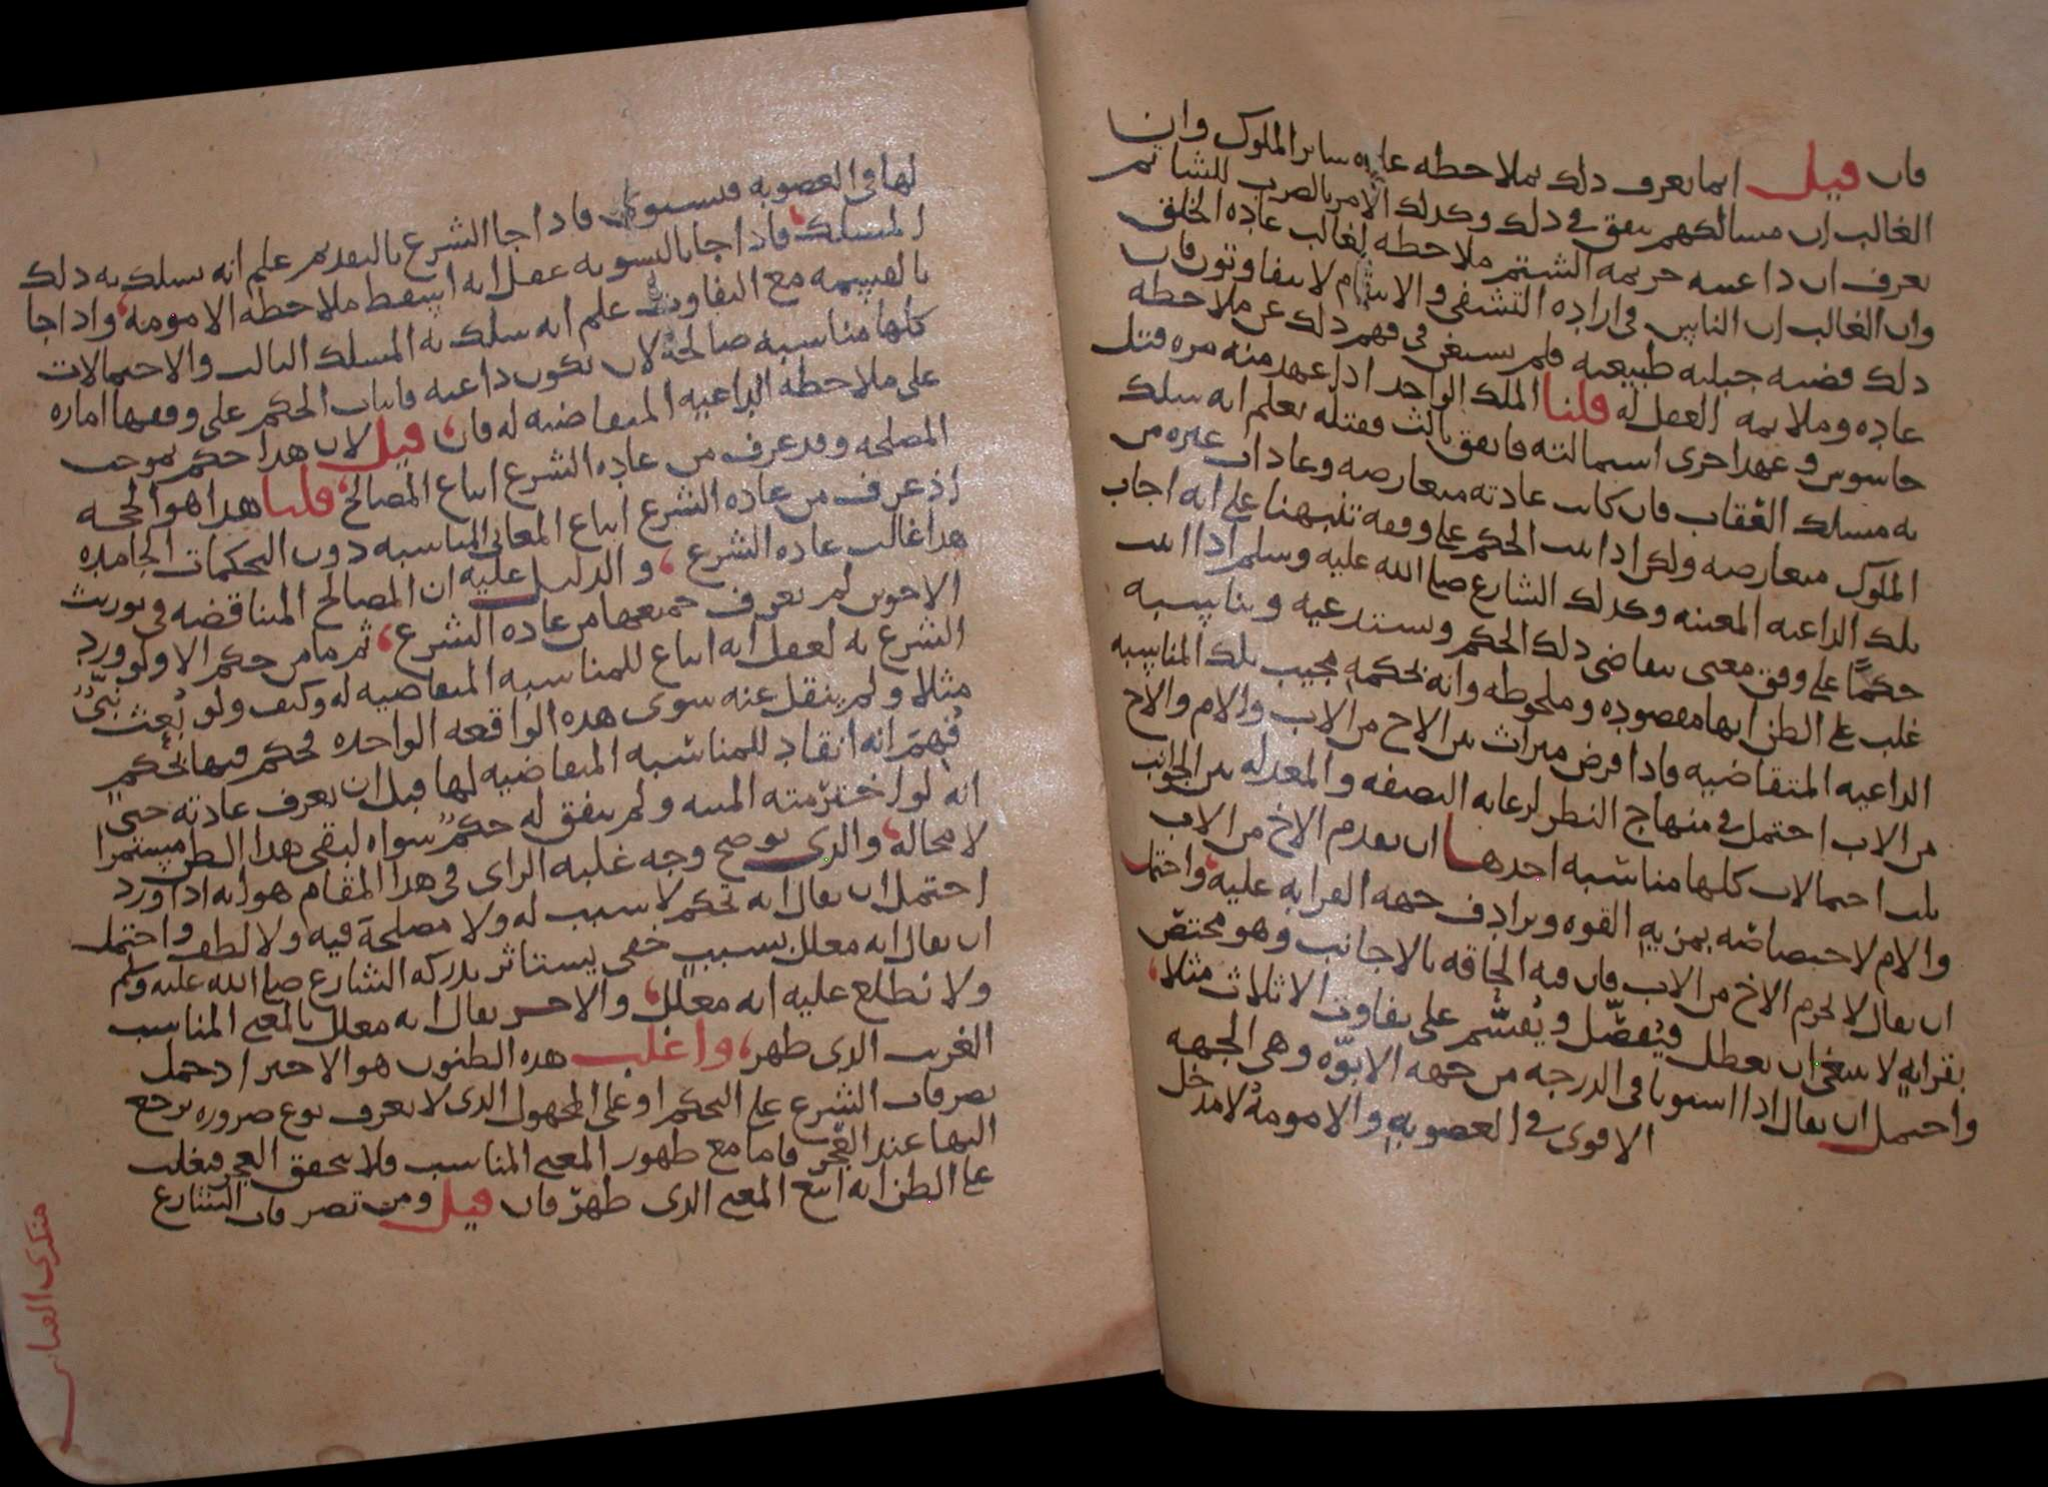 فان قيل انما يعرف ذلك بملاحظه عاده ساير الملوك وان
الغالب ان مسالكهم يتفق في ذلك وكذلك الامر بالضرب للشاتم
يعرف ان داعيته جريمه الشتم ملاحظه لغالب عاده الخلق
وان الغالب ان الناس في اراده التشفي والانتقام لا يتفاوتون فان
ذلك قضيه جبليه طبيعيه فلم يستغن في فهم ذلك عن ملاحظه
عاده وملايمه العقل له قلنا الملك الواحد اذا عهد منه مره قتل
جاسوس وعهد اخرى استمالته فاتفق ثالث فقتله يعلم انه سلك
به مسلك العقاب فان كانت عادته متعارضه وعادات غيره من
الملوك متعارضه ولكن اذا اثبت الحكم على وفقه تنبهنا على انه اجاب
تلك الداعيه المعينه وكذلك الشارع صلى الله عليه وسلم اذا اثبت
حكمًا على وفق معنى يتقاضى ذلك الحكم ويستدعيه ويناسبه
غلب على الظن انها مقصوده وملحوظه وانه بحكمه مجيب تلك المناسبه
الداعيه المتقاضيه فاذا فرض ميراث بين الاخ من الاب والام والاخ
من الاب احتمل في منهاج النظر لرعايه النصفه والمعدله بين الجوانب
ثلث احتمالات كلها مناسبه احدها ان يقدم الاخ من الاب
والام لاختصاصه بمزيه القوه وترادف جهه القرابه عليه، واحتمل
ان يقال لا يحرم الاخ من الاب فان فيه الحاقه بالاجانب وهو مختصّ
بقرابهٍ لا ينبغي ان يعطل فيُفضّل ويُقسّم على تفاوت الاثلاث مثلا،
واحتمل ان يقال اذا استويا في الدرجه من جهه الابوّه وهي الجهه
الاقوى في العصوبه والامومهُ لا مدخل
لها في العصوبه فيستويان فاذا جا الشرع بالتقديم علم انه سلك به ذلك
المسلك، فاذا جا بالتسويه عقل انه اسقط ملاحظه الامومه، واذا جا
بالقسمه مع التفاوت علم انه سلك به المسلك الثالث والاحتمالات
كلها مناسبه صالحهٌ لان تكون داعيه فاثبات الحكم على وفقها اماره
على ملاحظه الداعيه المتقاضيه له فان قيل لان هذا حكم بموجب
المصلحه وقد عرف من عاده الشرع اتباع المصالح، قلنا هذا هو الحجه
اذ عرف من عاده الشرع اتباع المعاني المناسبه دون التحكمات الجامده
هذا غالب عاده الشرع، والدليل عليه ان المصالح المتناقضه في توريث
الاخوين لم يعرف جميعها من عاده الشرع، ثم ما من حكم الا ولو ورد
الشرع به لعقل انه اتباع للمناسبه المتقاضيه له وكيف ولو بُعث نبيٌّ
مثلا ولم ينقل عنه سوى هذه الواقعه الواحده فحكم فيها بحكمٍ
فُهِمَ انه انقاد للمناسبه المتقاضيه لها قبل ان يعرف عادته حتى
انه لو اخترمته المنيه ولم يتفق له حكمٌ سواه لبقي هذا الظن مستمرا
لا محاله، والذي يوضح وجه غلبه الراي في هذا المقام هو انه اذا ورد
احتمل ان يقال انه تحكم لا سبب له ولا مصلحه فيه ولا لطف واحتمل
ان يقال انه معلل بسببٍ خفي يستاثر بدركه الشارع صلى الله عليه وسلم
ولا نطلع عليه انه معلل، والاخر يقال انه معلل بالمعنى المناسب
القريب الذي ظهر، واغلب هذه الظنون هو الاخير اذ حمل
تصرفات الشرع على التحكم او على المجهول الذي لا يعرف نوع ضروره يرجع
اليها عند العجز فاما مع ظهور المعنى المناسب فلا يتحقق العجز فيغلب
على الظن انه اتبع المعنى الذي ظهر فان قيل ومن تصرفات الشارع
منكري القياس